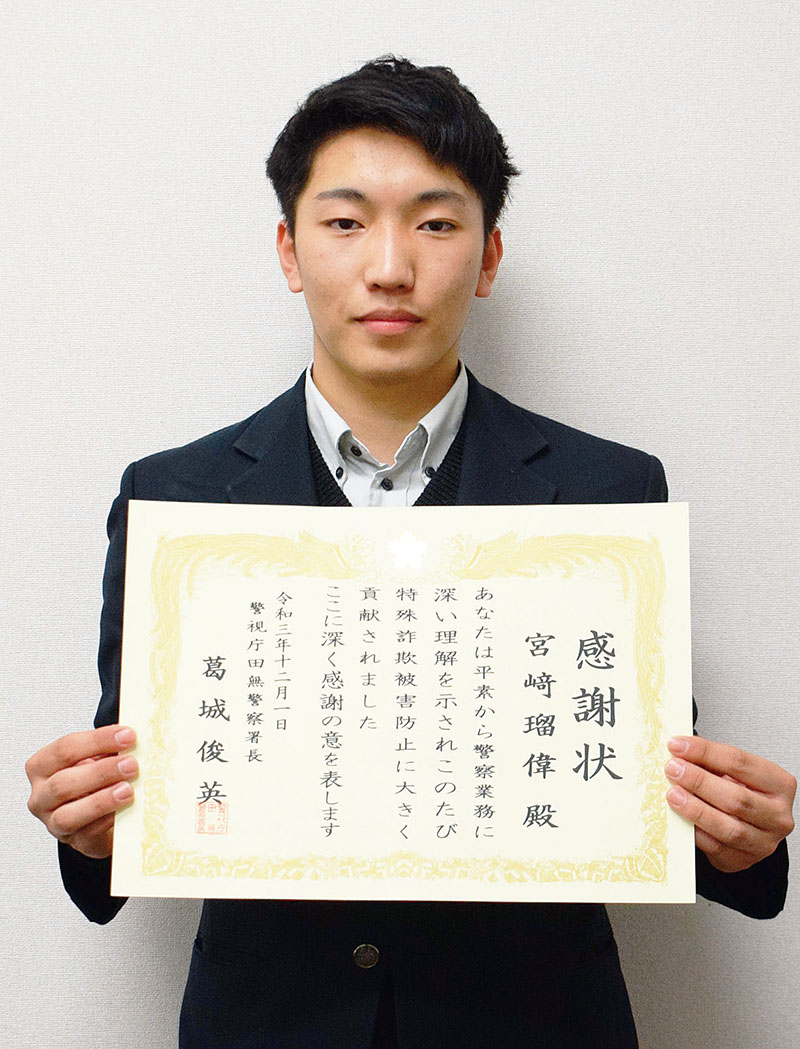 感謝状
宮﨑瑠偉 殿
あなたは平素から警察業務に
深い理解を示されこのたび
特殊詐欺被害防止に大きく
貢献されました
ここに深く感謝の意を表します
令和三年十二月一日
警視庁田無警察署長
葛城俊英